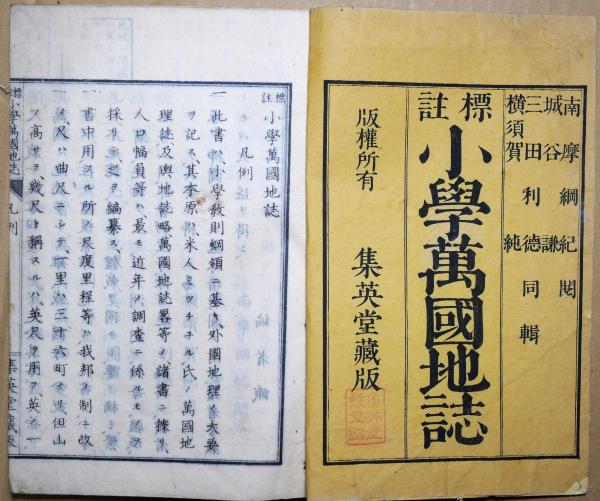 南摩綱紀閲
城谷謙
三田利德同輯
横須賀純
標註
小學萬國地誌
版權所有
集英堂藏版
標註
小學萬國地誌
凡例
一此書ハ小學教則綱領ニ基キ外國地理ノ大要
ヲ記ス其本原ハ米人ミツチユル氏ノ萬國地
理誌及輿地誌略萬國地誌畧等ノ諸書ニ據リ
人口幅員等ハ最モ近年ノ調査ニ係ルモノヲ
採リテ之ヲ編纂ス
一書中用フル所ノ尺度里程等ハ我邦ノ制ニ改
ム尺ハ曲尺ニシテ一里ハ三十六町トス但山
ノ高サヲ幾尺ト稱スルハ英尺ヲ用フ英一
標註
小學萬國地誌
凡例
集英堂藏版